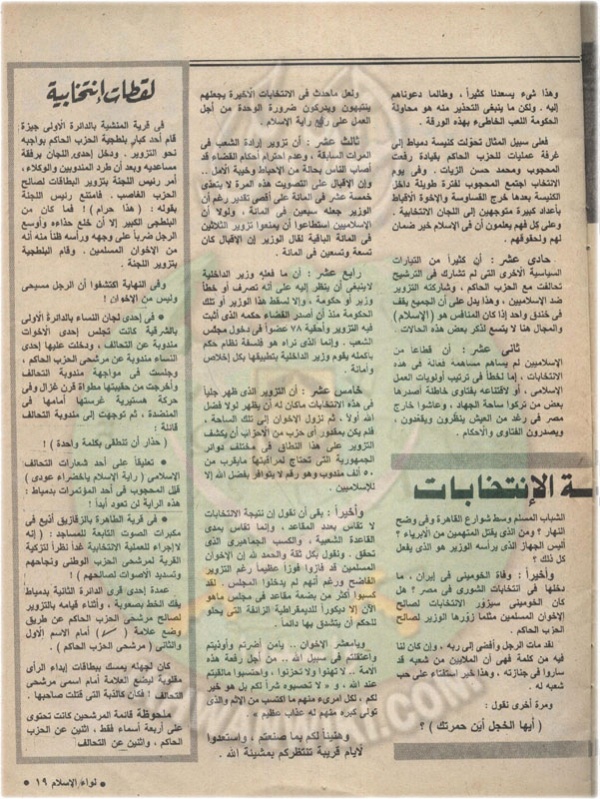 وهذا شيء يسعدنا كثيراً ، وطالما دعوناهم
إليه . ولكن ما ينبغى التحذير منه هو محاولة
الحكومة اللعب الخاطىء بهذه الورقة .
فعلى سبيل المثال تحولت كنيسة دمياط إلى
غرفة عمليات للحزب الحاكم بقيادة رفعت
المحجوب ومحمد حسن الزيات . وفى يوم
الانتخاب اجتمع المحجوب لفترة طويلة داخل
الكنيسة بعدها خرج القساوسة والإخوة الأقباط
بأعداد كبيرة متوجهين إلى اللجان الانتخابية .
وعلى كل فهم يعلمون أن فى الإسلام خير ضمان
لهم ولحقوقهم .
حادى عشر : أن كثيراً من التيارات
السياسية الأخرى التى لم تشارك فى الترشيح
تحالفت مع الحزب الحاكم ، وشاركته التزوير
ضد الإسلاميين ، وهذا يدل على أن الجميع يقف
فى خندق واحد إذا كان المنافس هو (الإسلام)
والمجال هنا لا يتسع لذكر بعض هذه الحالات .
ثانى عشر : أن قطاعا من
الإسلاميين لم يساهم مساهمة فعالة فى هذه
الانتخابات ، إما لخطأ فى ترتيب أولويات العمل
الإسلامى ، أو لاقتناعه بفتاوى خاطئة أصدرها
بعض من تركوا ساحة الجهاد ، وعاشوا خارج
مصر فى رغد من العيش ينظرون ويقننون ،
ويصدرون الفتاوى والأحكام .
ـة الإنتخابات
الشباب المسلم وسط شوارع القاهرة وفى وضح
النهار ؟ ومن الذى يقتل المتهمين من الأبرياء ؟
أليس الجهاز الذى يرأسه الوزير هو الذى يفعل
كل ذلك ؟
وأخيراً : وفاة الخومينى فى إيران ، ما
دخلها فى انتخابات الشورى فى مصر ؟ هل
كان الخومينى سيزور الانتخابات لصالح
الإخوان المسلمين مثلما زورها الوزير لصالح
الحزب الحاكم .
لقد مات الرجل وأفضى إلى ربه ، وإن كان لنا
فيه من كلمة فهى أن الملايين من شعبه قد
ساروا فى جنازته ، وهذا خير استفتاء على حب
شعبه له .
ومرة أخرى نقول :
( أيها الخجل أين حمرتك ) ؟
ولعل ماحدث فى الانتخابات الأخيرة يجعلهم
ينتبهون ويدركون ضرورة الوحدة من أجل
العمل على رفع راية الإسلام .
ثالث عشر : أن تزوير إرادة الشعب فى
المرات السابقة ، وعدم احترام أحكام القضاء قد
أصاب الناس بحالة من الإحباط وخيبة الأمل ..
وإن الإقبال على التصويت هذه المرة لا يتعدى
خمسة عشر فى المائة على أقصى تقدير رغم أن
الوزير جعله سبعين فى المائة ، ولولا أن
الإسلاميين استطاعوا أن يمنعوا تزوير الثلاثين
فى المائة الباقية لقال الوزير إن الإقبال كان
تسعة وتسعين فى المائة .
رابع عشر : أن ما فعله وزير الداخلية
لاينبغى أن ينظر إليه على أنه تصرف أو خطأ
وزير أو حكومة ، وإلا لسقط هذا الوزير أو تلك
الحكومة منذ أن أصدر القضاء حكمه الذى أثبت
فيه التزوير وأحقية ٧٨ عضواً فى دخول مجلس
الشعب . وإنما الذى نراه هو فلسفة نظام حكم
بأكمله يقوم وزير الداخلية بتطبيقها بكل إخلاص
وأمانة .
خامس عشر : أن التزوير الذى ظهر جلياً
فى هذه الانتخابات ماكان له أن يظهر لولا فضل
الله أولا ، ثم نزول الإخوان إلى تلك الساحة ،
فلم يكن بمقدور أى حزب من الأحزاب أن يكشف
التزوير على هذا النطاق فى مختلف دوائر
الجمهورية التى تحتاج لمراقبتها مايقرب من
٥٠ ألف مندوب وهو رقم لا يتوافر بفضل الله إلا
للإسلاميين .
وأخيراً : بقى أن نقول إن نتيجة الانتخابات
لا تقاس بعدد المقاعد ، وإنما تقاس بمدى
القاعدة الشعبية ، والكسب الجماهيرى الذى
تحقق . ونقول بكل ثقة والحمد لله إن الإخوان
المسلمين قد فازوا فوزاً عظيماً رغم التزوير
الفاضح ورغم أنهم لم يدخلوا المجلس . لقد
كسبوا أكثر من بضعة مقاعد فى مجلس ماهو
الآن إلا ديكوراً للديمقراطية الزائفة التى يحلو
للحكم أن يتشدق بها دائماً .
ويامعشر الإخوان .. يامن أضرتم وأوذيتم
وأعتقلتم فى سبيل الله .. من أجل رفعة هذه
الأمة .. لا تهنوا ولا تحزنوا ، واحتسبوا مالقيتم
عند الله ، و« لا تحسبوه شراً لكم بل هو خير
لكم ، لكل امرىء منهم ما اكتسب من الإثم والذى
تولى كبره منهم له عذاب عظيم » .
وهنيئاً لكم بما صنعتم ، واستعدوا
لأيام قريبة تنتظركم بمشيئة الله .
لقطات إنتخابية
فى قرية المنشية بالدائرة الأولى جيزة
قام أحد كبار بلطجية الحزب الحاكم بواجبه
نحو التزوير . ودخل إحدى اللجان برفقة
مساعديه وبعد أن طرد المندوبين والوكلاء ،
أمر رئيس اللجنة بتزوير البطاقات لصالح
الحزب الغاصب . فامتنع رئيس اللجنة
بقوله : ( هذا حرام ) ! فما كان من
البلطجى الكبير إلا أن خلع حذاءه وأوسع
الرجل ضرباً على وجهه ورأسه ظناً منه أنه
من الإخوان المسلمين . وقام البلطجية
بتزوير اللجنة .
وفى النهاية اكتشفوا أن الرجل مسيحى
وليس من الإخوان !
● فى إحدى لجان النساء بالدائرة الأولى
بالشرقية كانت تجلس إحدى الأخوات
مندوبة عن التحالف ، ودخلت عليها إحدى
النساء مندوبة عن مرشحى الحزب الحاكم ،
وجلست فى مواجهة مندوبة التحالف
وأخرجت من حقيبتها مطواة قرن غزال وفى
حركة هستيرية غرستها أمامها فى
المنضدة ، ثم توجهت إلى مندوبة التحالف
قائلة :
( حذار أن تنطقى بكلمة واحدة ) !
● تعليقاً على أحد شعارات التحالف
الإسلامى ( راية الإسلام ياخضراء عودى )
قال المحجوب فى أحد المؤتمرات بدمياط :
هذه الراية لن تعود أبداً !
● فى قرية الطاهرة بالزقازيق أذيع فى
مكبرات الصوت التابعة للمساجد : إنه
لا إجراء للعملية الانتخابية غداً نظراً لتزكية
القرية لمرشحى الحزب الوطنى ونجاحهم
وتسديد الأصوات لصالحهم !
عمدة إحدى قرى الدائرة الثانية بدمياط
يفك الخط بصعوبة ، وأثناء قيامه بالتزوير
لصالح مرشحى الحزب الحاكم عن طريق
وضع علامة ( ✓ ) أمام الاسم الأول
والثانى ( مرشحى الحزب الحاكم ) .
كان لجهله يمسك ببطاقات إبداء الرأى
مقلوبة ليضع العلامة أمام اسمى مرشحى
التحالف ! فكان كالدبة التى قتلت صاحبها .
ملحوظة قائمة المرشحين كانت تحتوى
على أربعة أسماء فقط ، اثنين عن الحزب
الحاكم ، واثنين عن التحالف .
● لواء الإسلام ١٩ ●